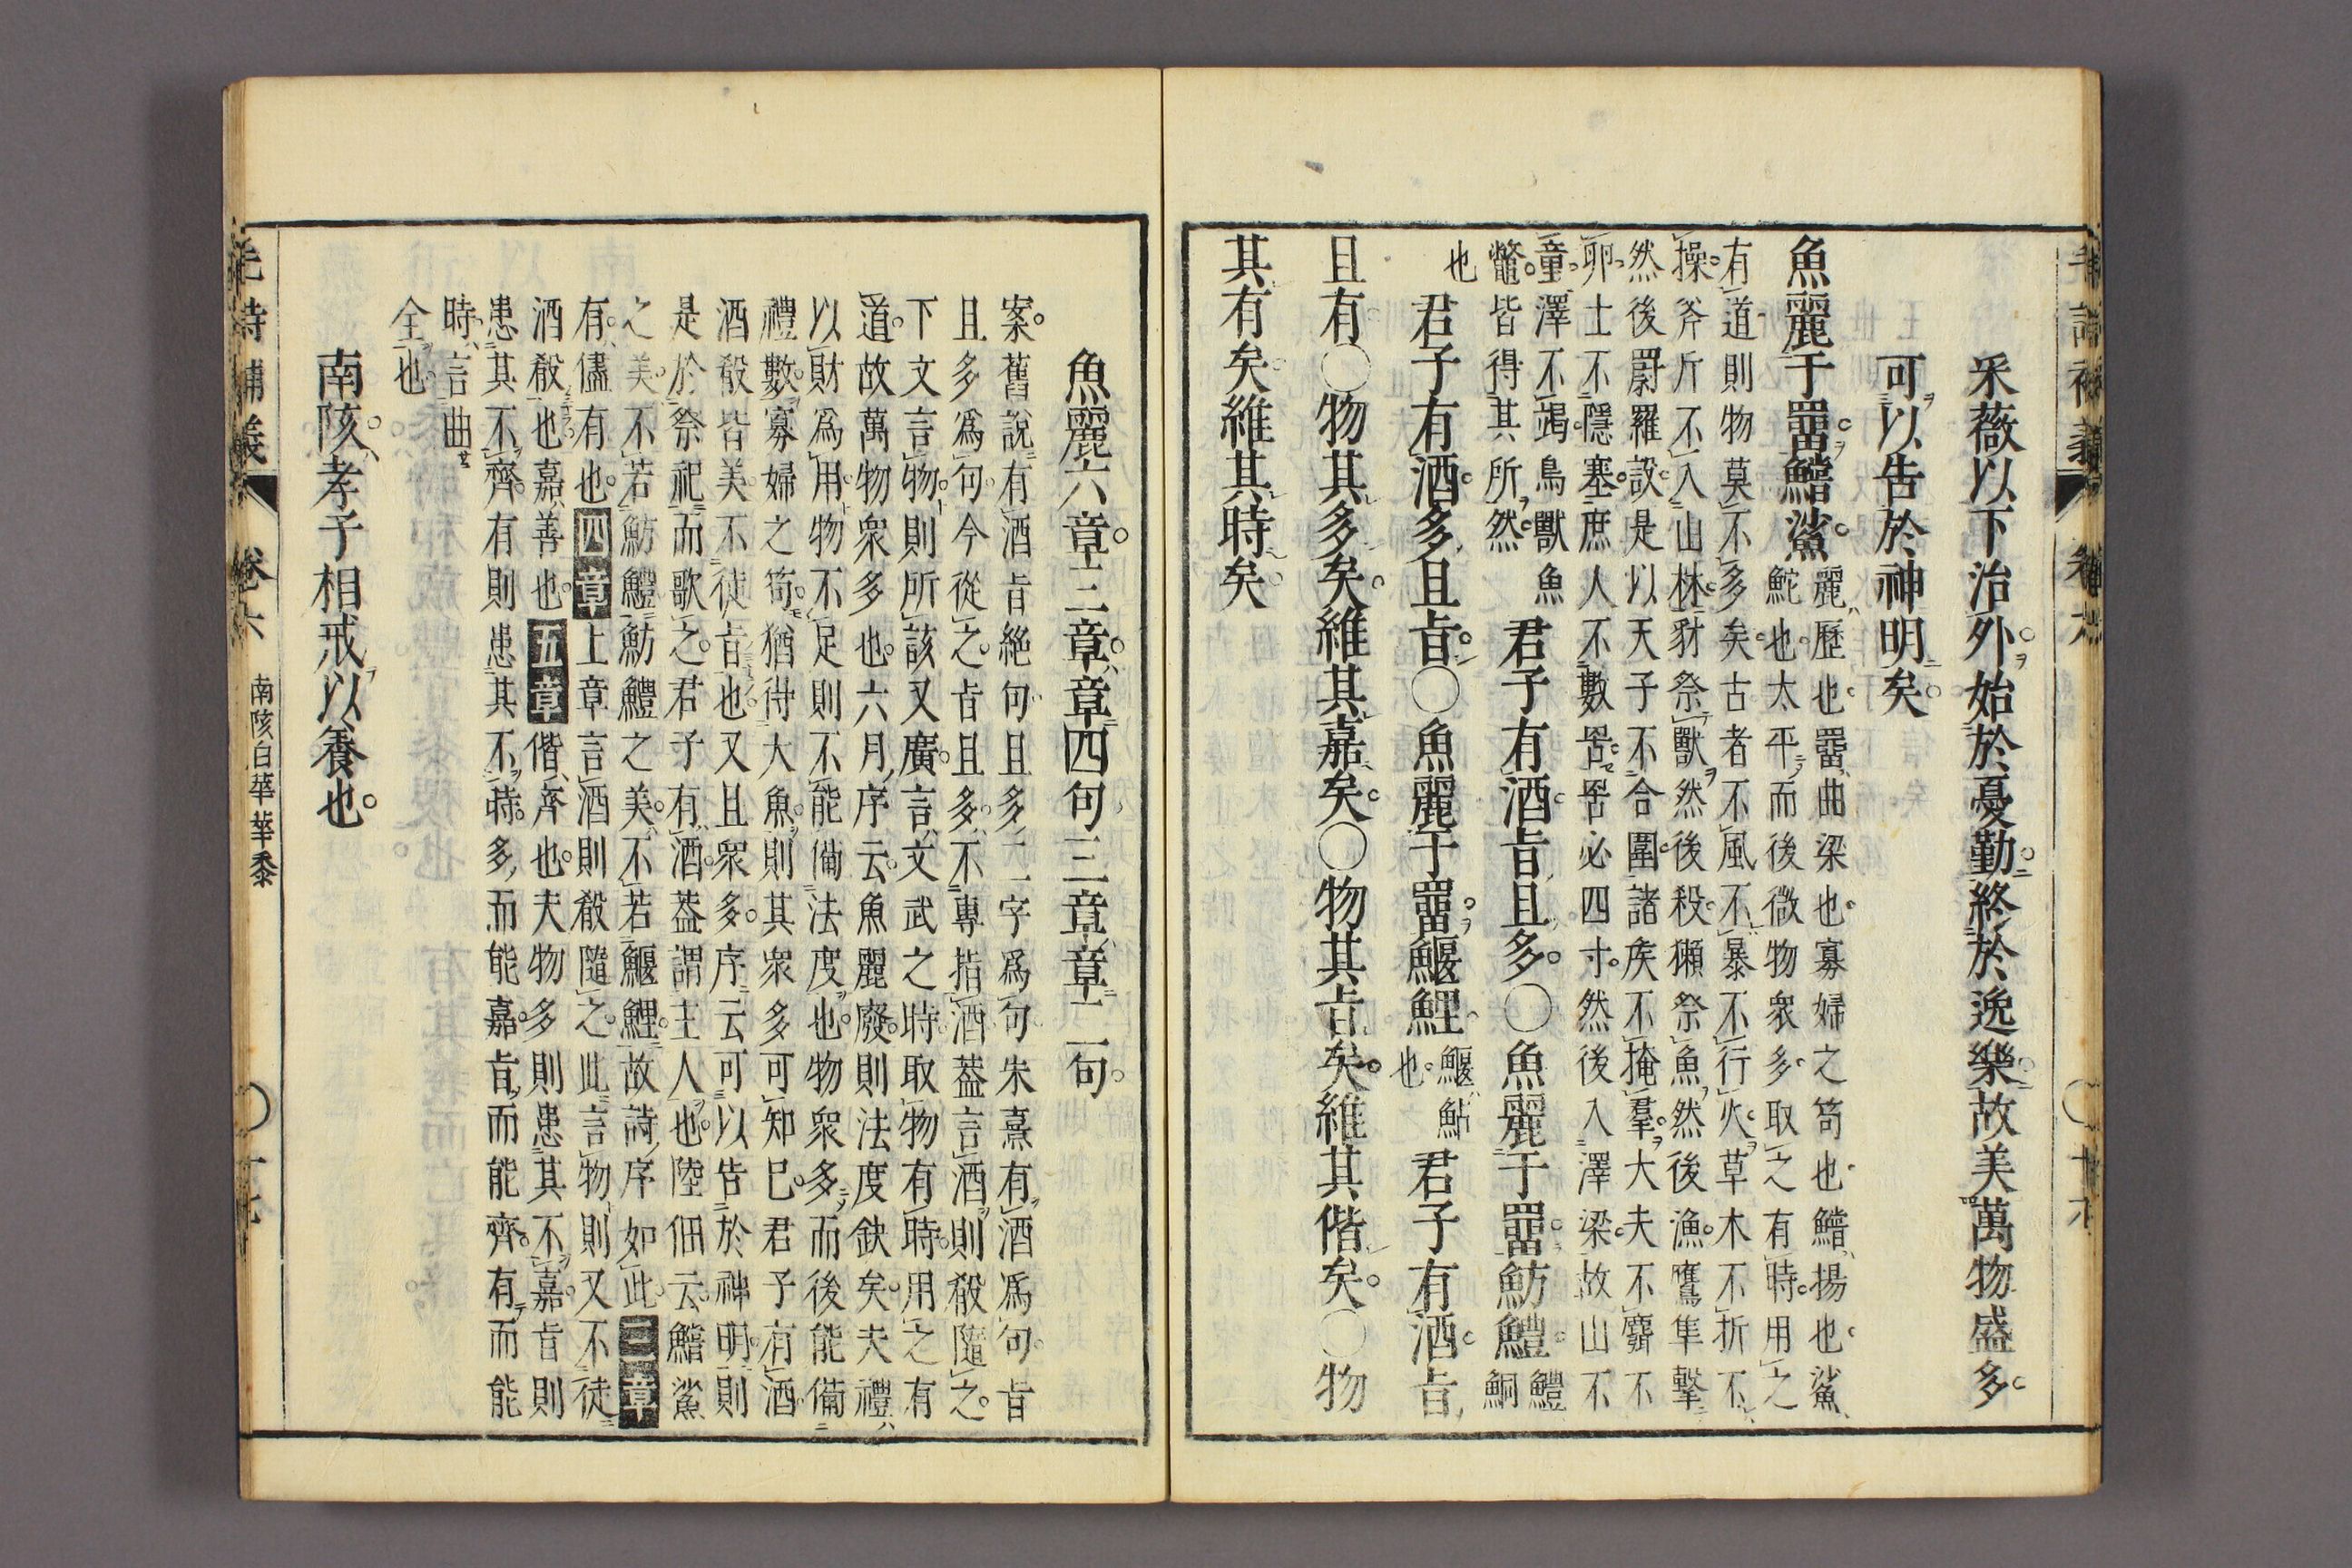 采薇以下治外始於憂勤終於逸樂故美萬物盛多
可以告於神明矣
魚麗于罶鱨鯊
麗歷也罶曲梁也寡婦之笱也鱨揚也鯊
鮀也太平而後微物衆多取之有時用之
有道則物莫不多矣古者不風不暴不行火草木不折不
操斧斤不入山林豺祭獸然後殺獺祭魚然後漁鷹隼擊
然後罻羅設是以天子不合圍諸矦不掩羣大夫不麛不
卵士不隱塞庶人不數罟罟必四寸然後入澤梁故山不
童澤不竭鳥獸魚
鼈皆得其所然
也
君子有酒旨且多〇魚麗于罶魴鱧
鱧
鮦
君子有酒多且旨〇魚麗于罶鰋鯉
鰋鮎
也
君子有酒旨
且有〇物其多矣維其嘉矣〇物其旨矣維其偕矣〇物
其有矣維其時矣
毛詩補義 卷六
魚麗六章三章章四句三章章二句
案舊說有酒旨絶句且多二字爲句朱熹有酒爲句旨
且多爲句今從之旨且多不專指酒葢言酒則殽隨之
下文言物則所該又廣言文武之時取物有時用之有
道故萬物衆多也六月序云魚麗廢則法度缺矣夫禮
以財爲用物不足則不能備法度也物衆多而後能備
禮數寡婦之笱猶得大魚則其衆多可知巳君子有酒
酒殽皆美不徒旨也又且衆多序云可以告於神明則
是於祭祀而歌之君子有酒葢謂主人也陸佃云鱨鯊
之美不若魴鱧魴鱧之美不若鰋鯉故詩序如此三章
有儘有也四章上章言酒則殽隨之此言物則又不徒
酒殽也嘉善也五章偕齊也夫物多則患其不嘉旨則
患其不齊有則患其不時多而能嘉旨而能齊有而能
時言曲
全也
南陔孝子相戒以養也
毛詩補義 卷六 南陔白華華黍